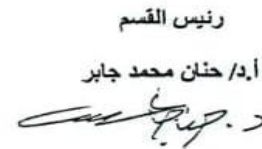 رئيس القسم
أ.د/ حنان محمد جابر